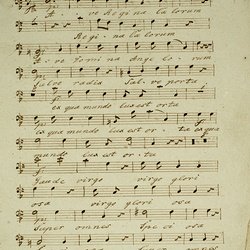 A ve Regina Cœlorum
Regi na Cœlorum
A ve Domina Ange lo rum
Sal ve radix Sal ve porta
ex qua mundo lux est orta
ex qua mundo lux est orta ex qua
mundo lux est or ta
Gaude virgo virgo glori
osa virgo glori osa
Super omnes Spe ci osa